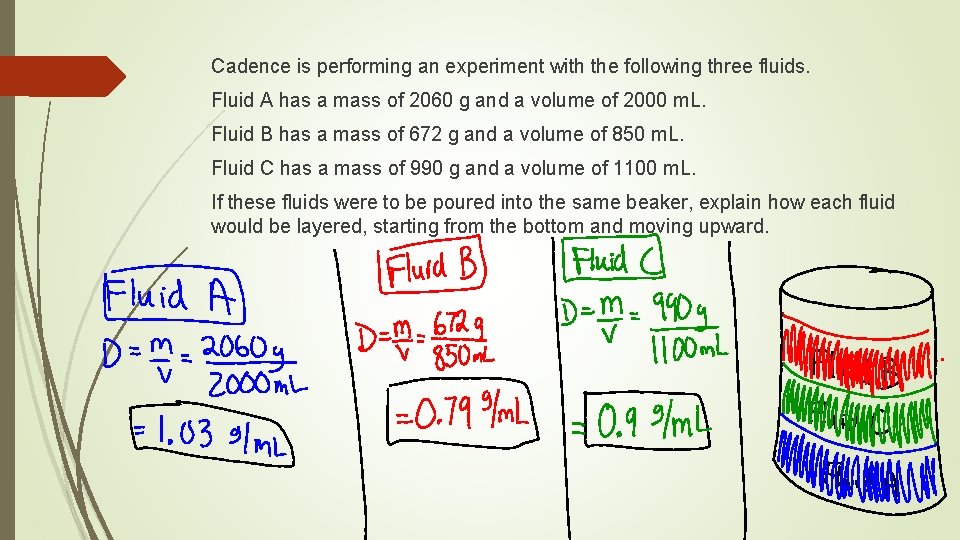 Cadence is performing an experiment with the following three fluids.
Fluid A has a mass of 2060 g and a volume of 2000 m L.
Fluid B has a mass of 672 g and a volume of 850 m L.
Fluid C has a mass of 990 g and a volume of 1100 m L.
If these fluids were to be poured into the same beaker, explain how each fluid
would be layered, starting from the bottom and moving upward.
Fluid A
D = m/V = 2060 g / 2000 mL
= 1.03 g/mL
Fluid B
D = m/V = 672 g / 850 mL
= 0.79 g/mL
Fluid C
D = m/V = 990 g / 1100 mL
= 0.9 g/mL
B
C
A